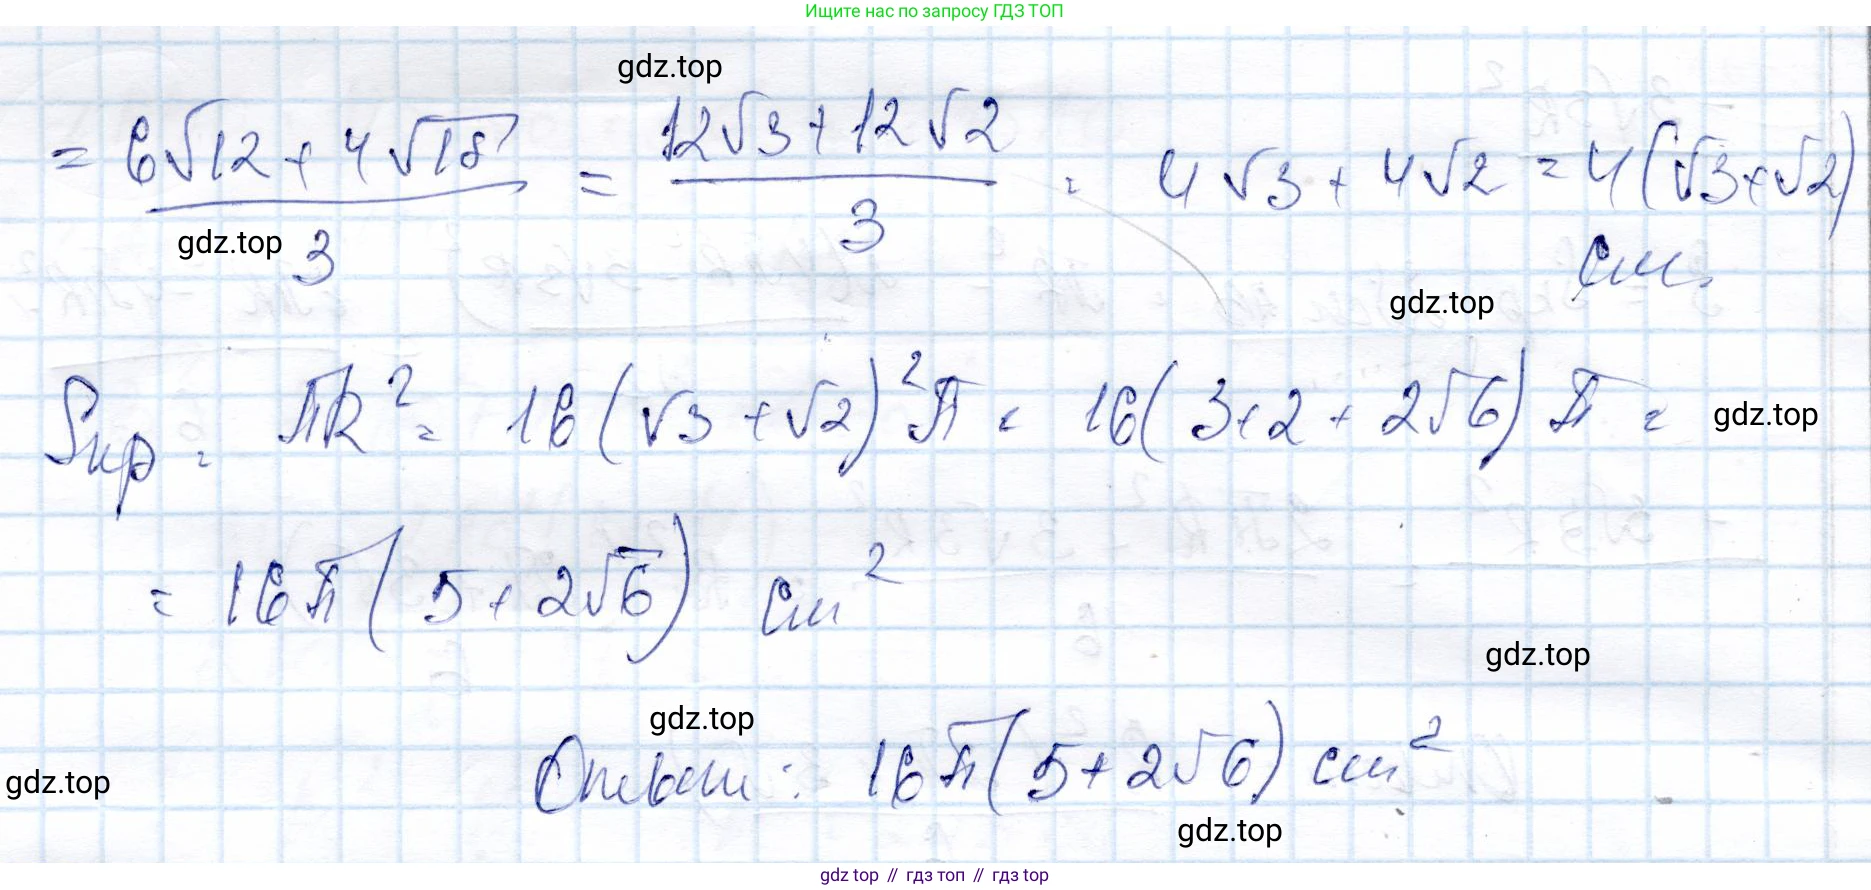 Ищите нас по запросу ГДЗ ТОП
gdz.top
= (6√12 + 4√18)/3 = (12√3 + 12√2)/3 = 4√3 + 4√2 = 4(√3+√2)
см.
gdz.top
gdz.top
Sкр = πR² = 16(√3+√2)²π = 16(3+2+2√6)π =
gdz.top
= 16π(5+2√6) см²
gdz.top
gdz.top
Ответ: 16π(5+2√6) см²
gdz.top
gdz.top
gdz top // гдз топ // гдз top